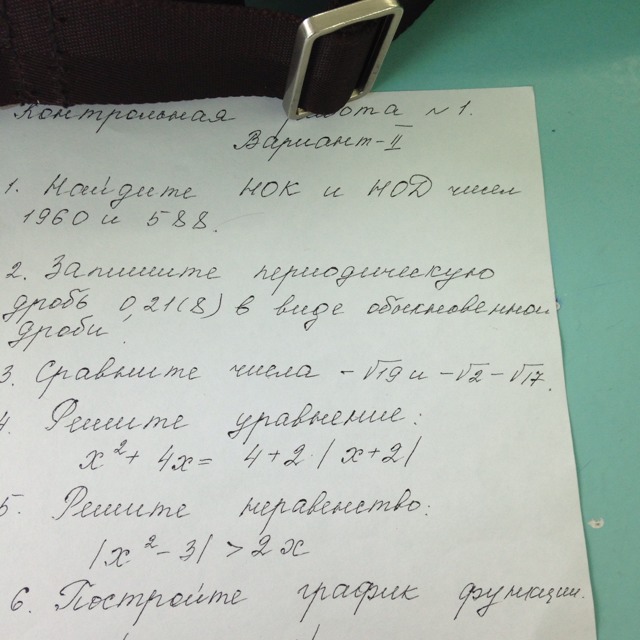 Контрольная работа №1.
Вариант-II
1. Найдите НОК и НОД чисел
1960 и 588.
2. Запишите периодическую
дробь 0,21(8) в виде обыкновенной
дроби.
3. Сравните числа -√19 и -√2-√17.
4. Решите уравнение:
x²+ 4x= 4+2·|x+2|
5. Решите неравенство:
|x²-3|>2x
6. Постройте график функции.